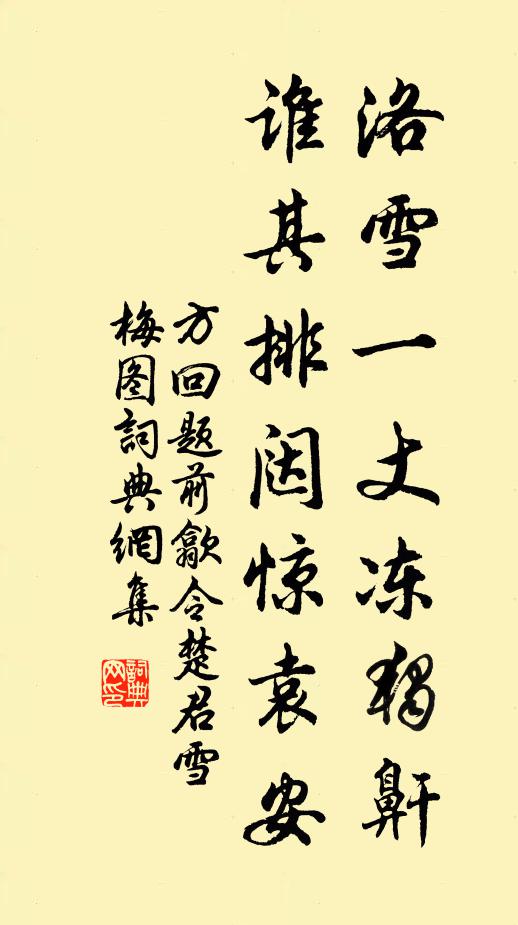 洛雪一丈冻獨鼾
谁其排闼惊袁安
方回题前歙令楚君雪
梅图詞典網集
詞典
网印